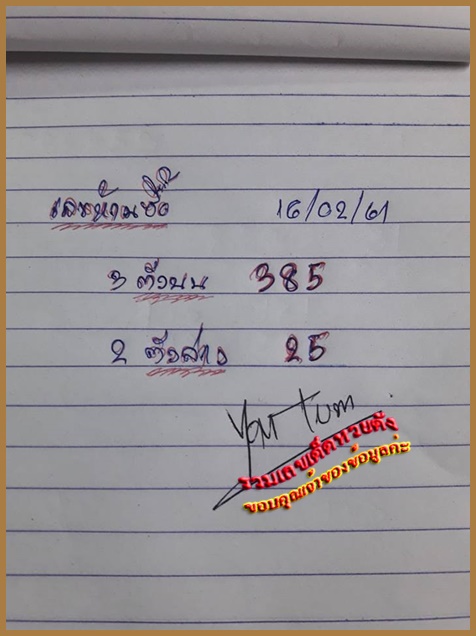 เลขห้ามซื้อ 16/02/61
3 ตัวบน 385
2 ตัวล่าง 25
รวมเลขเด็ดหวยดัง
ขอบคุณเจ้าของข้อมูลค่ะ